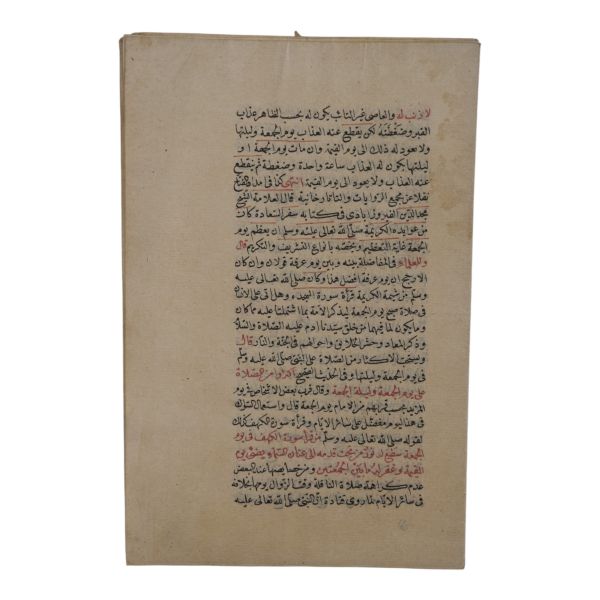 لا ذنب له والعاصى غير التائب يكون له بحسب الظاهر عذاب
القبر وضغطته لكن ينقطع عنه العذاب يوم الجمعة وليلتها
ولا يعود له ذلك الى يوم القيمة وان مات يوم الجمعة او
ليلتها يكون له العذاب ساعة واحدة وضغطة ثم ينقطع
عنه العذاب ولا يعود الى يوم القيمة انتهى كذا فى
نقلا عن مجمع الروايات والتاتارخانية قال العلامة الشيخ
مجد الدين الفيروزابادى فى كتابه سفر السعادة كان
من عوايده الكريمة صلى الله تعالى عليه وسلم ان يعظم يوم
الجمعة غاية التعظيم ويخصه بانواع التشريف والتكريم قال
وللعلماء فى المفاضلة بينه وبين يوم عرفة قولان وان كان
الارجح ان يوم عرفة افضل هذا وكان صلى الله تعالى عليه
وسلم من شيمة الكريمة قرأة سورة السجدة وهل اتى على الانسان
فى صلاة صبح يوم الجمعة ليذكر الامة بما اشتملتا عليه مما كان
وما يكون لما فيهما من خلق سيدنا ادم عليه الصلاة والسلام
وذكر المعاد وحشر الخلايق واحوالهم فى الجنة والنار قال
ويستحب الاكثار من الصلاة على النبى صلى الله عليه وسلم
فى يوم الجمعة وليلتها وفى الحديث الصحيح اكثروا من الصلاة
على يوم الجمعة وليلة الجمعة وقال قرب بعض الاشخاص فى يوم
المزيد بحسب قربهم من الامام يوم الجمعة قال واستعمال السواك
فى هذا اليوم مفضل على سائر الايام وقرأة سورة الكهف كذلك
لقوله صلى الله تعالى عليه وسلم من قرأ سورة الكهف فى يوم
الجمعة سطع له نور من تحت قدمه الى عنان السماء يضئ يوم
القيمة وغفر له ما بين الجمعتين ومن خصايصها عند البعض
عدم كراهة صلاة النافلة وقت الزوال يومها بخلافه
فى سائر الايام لما روى قتادة ان النبى صلى الله تعالى عليه